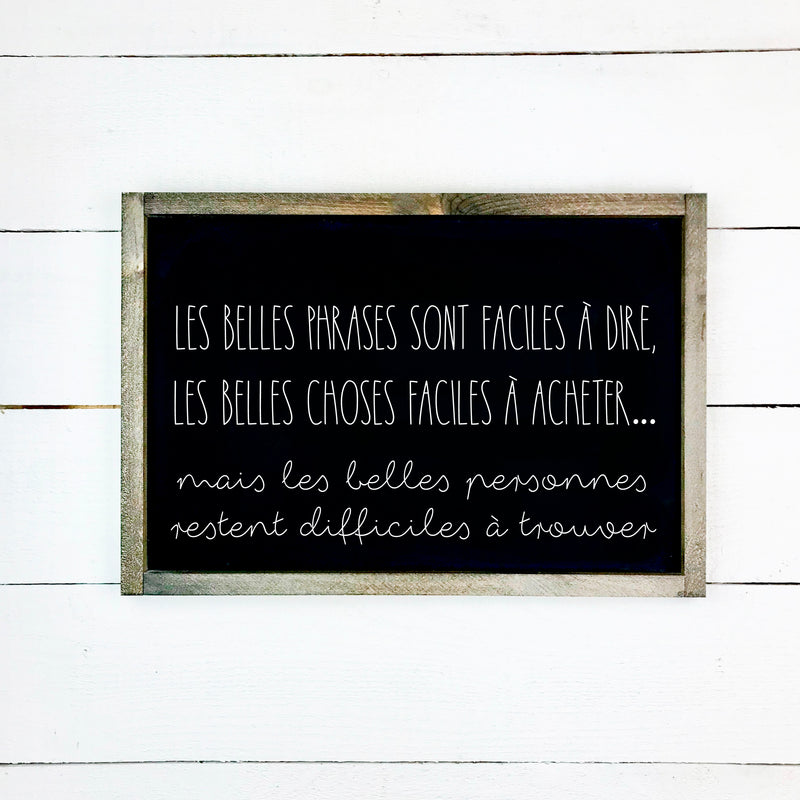 LES BELLES PHRASES SONT FACILES À DIRE,
LES BELLES CHOSES FACILES À ACHETER...
mais les belles personnes
restent difficiles à trouver